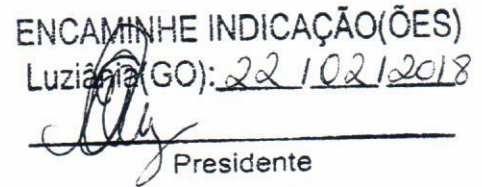 ENCAMINHE INDICAÇÃO(ÕES)
Luziânia(GO): 22 / 02 / 2018
Presidente